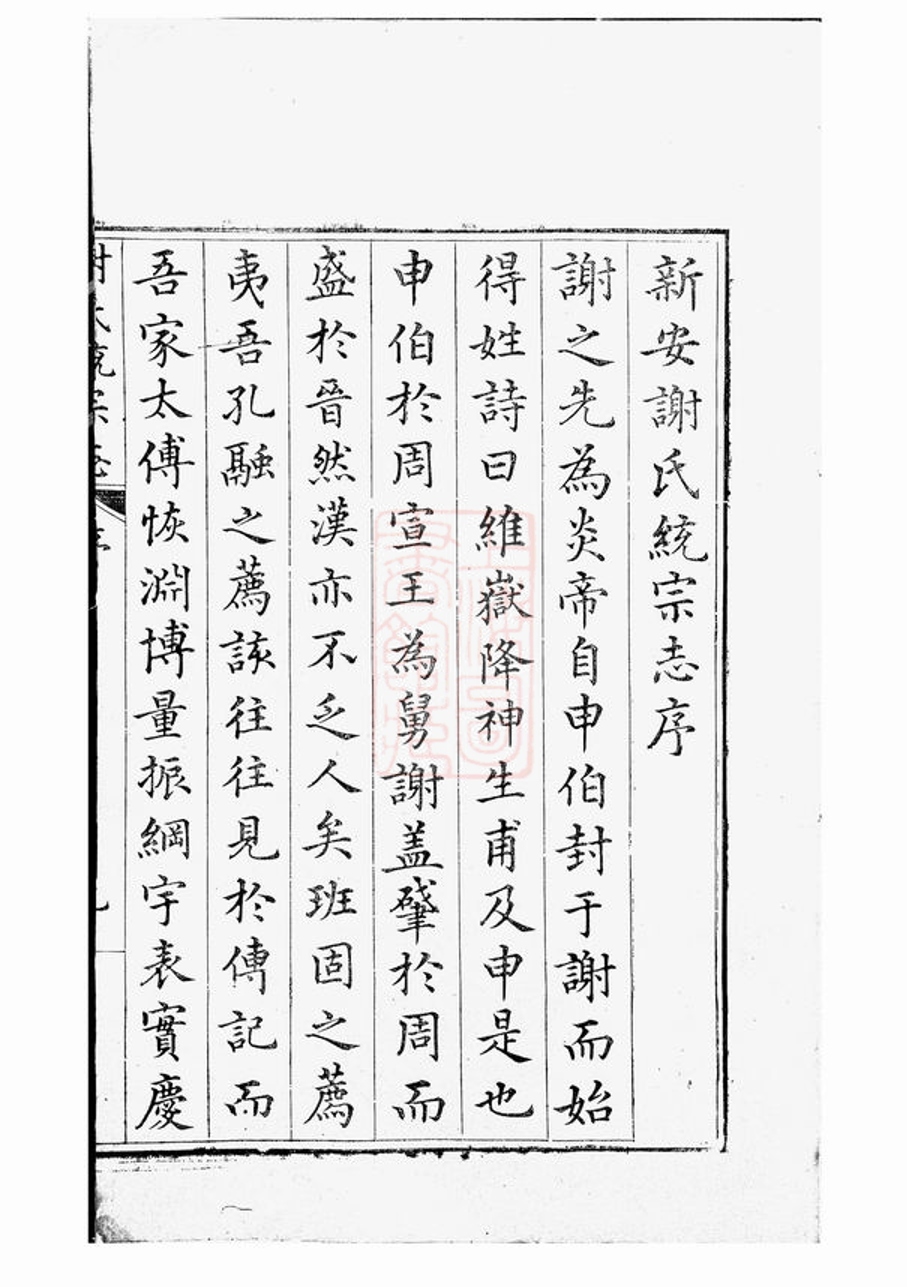 新安謝氏統宗志序
謝之先為炎帝自申伯封于謝而始
得姓詩曰維嶽降神生甫及申是也
申伯於周宣王為舅謝盖肇於周而
盛於晉然漢亦不乏人矣班固之薦
夷吾孔融之薦該往往見於傳記而
吾家太傅恢淵博量振綱宇表實慶